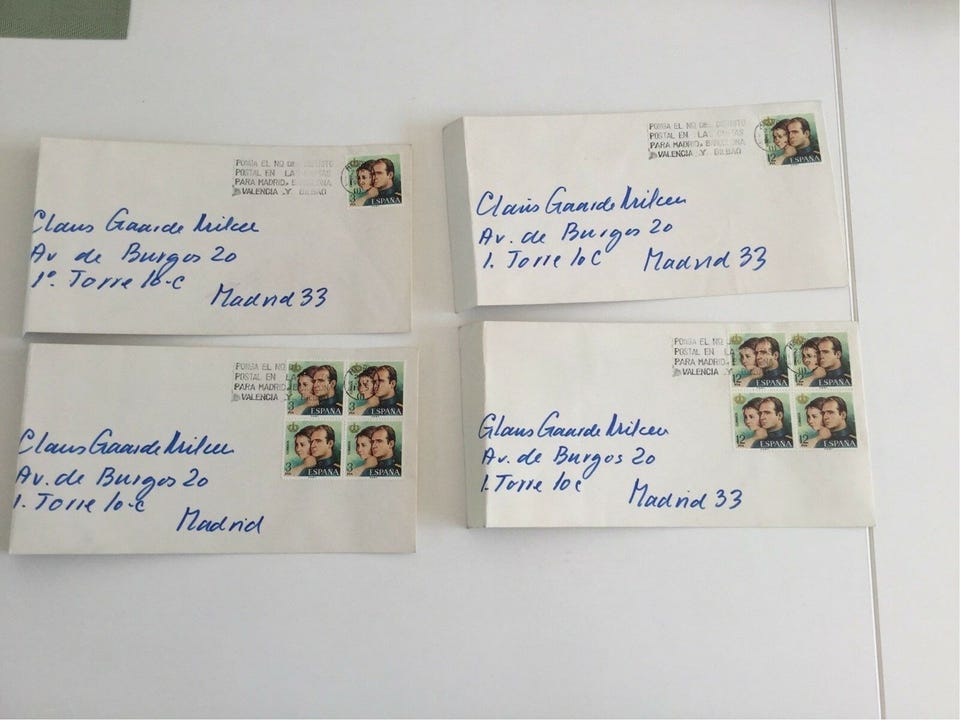 PONGA EL NO DEL DISTRITO
POSTAL EN LAS CARTAS
PARA MADRID, BARCELONA
VALENCIA Y BILBAO
3
ESPAÑA
Claus Gaarde Nilcu
Av de Burgos 20
1º. Torre 10-C
Madrid 33
PONGA EL NO DEL DISTRITO
POSTAL EN LAS CARTAS
PARA MADRID, BARCELONA
VALENCIA Y BILBAO
12
ESPAÑA
Claus Gaarde
Av. de Burgos 20
1. Torre 10C Madrid 33
PONGA EL NO D
POSTAL EN LA
PARA MADRID
VALENCIA Y
3 ESPAÑA
3 ESPAÑA
3 ESPAÑA
3 ESPAÑA
Claus Gaarde
Av. de Burgos 20
1. Torre 10-C
Madrid
PONGA EL NO
POSTAL EN LA
PARA MADRID
VALENCIA Y
12 ESPAÑA
12 ESPAÑA
12 ESPAÑA
12 ESPAÑA
Glaus Gaarde
Av. de Burgos 20
1. Torre 10C
Madrid 33